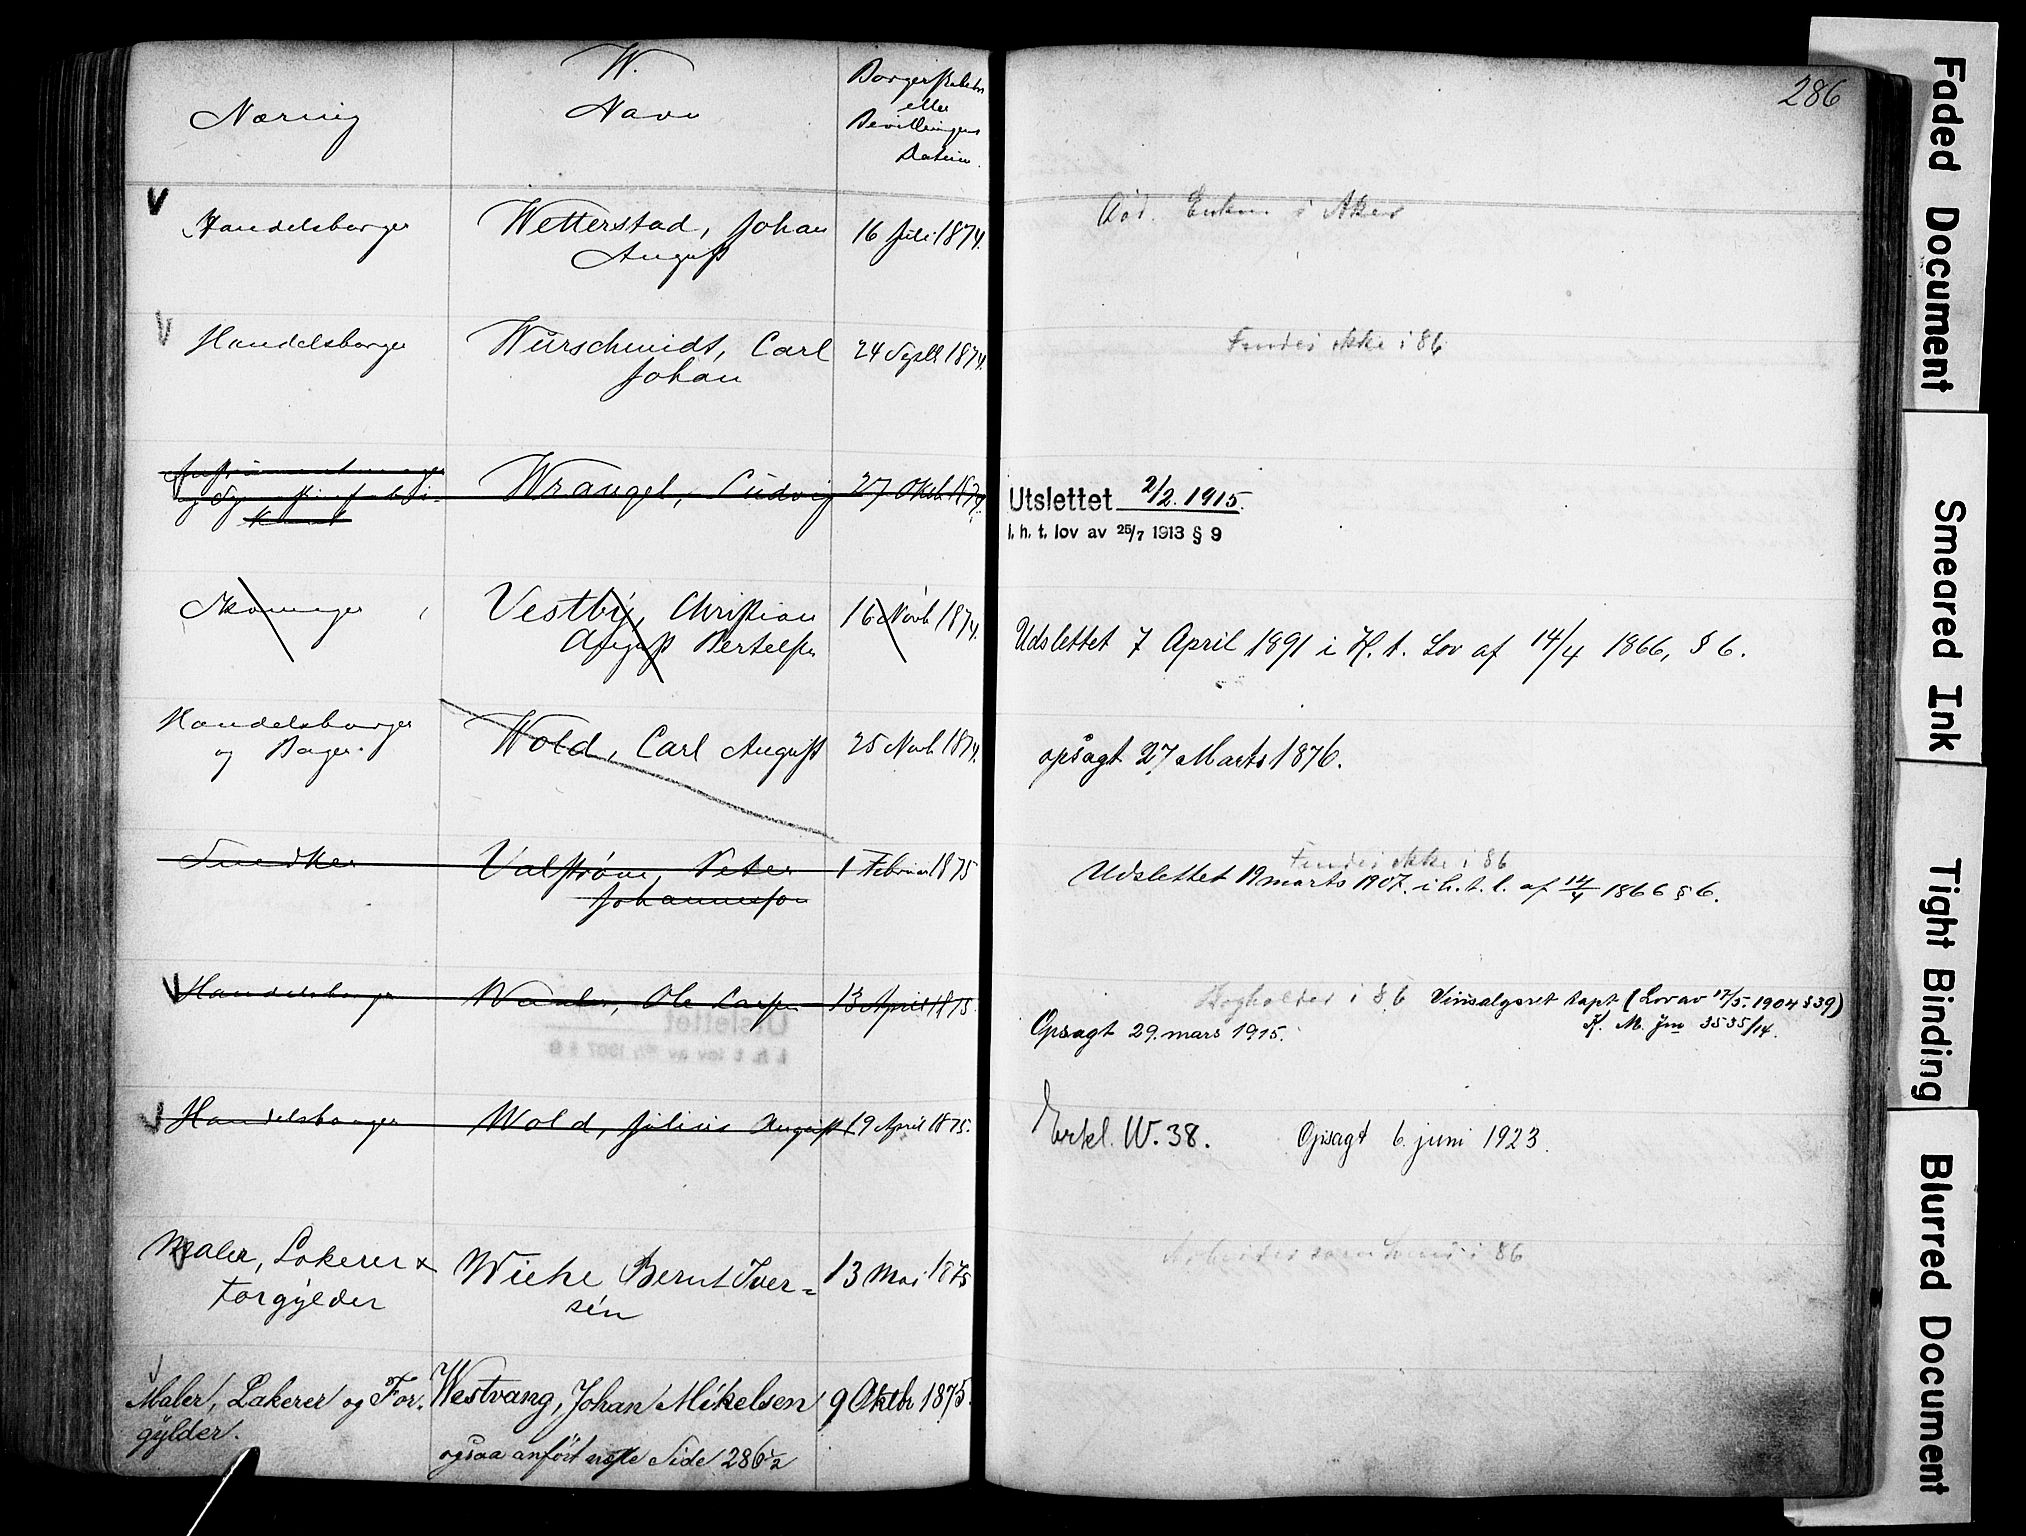 W.
286
Næring
Navn
Borgerskabets
eller
Bevillingens
Datum.
V
Handelsborger
Wetterstad, Johan
August
16 Juli 1874.
Død. Enken i Aker
V
Handelsborger
Würschmidt, Carl
Johan
24 Septb 1874.
Findes ikke i 86
Wrangel, Ludvig
27 Oktb 1874
Utslettet 2/2. 1915.
i. h. t. lov av 25/7 1913 § 9
Vestby, Christian
August Bertelsen
16 Novb 1874.
Udslettet 7 April 1891 i H. t. Lov af 14/4 1866, § 6.
Handelsborger
og Bager.
Wold, Carl August
25 Novb 1874.
opsagt 27 Marts 1876.
Snedker
Valstrøm, Peter
Johannesson
1 Februar 1875
Findes ikke i 86
Udslettet 19 marts 1907. i h. t. l. af 14/4 1866 § 6.
V
Handelsborger
Ole Larsen
13 April 1875
i 86 Vinsalgsret tapt (Lov av 17/5. 1904 § 39)
K. M. Jm 3535/14.
Opsagt 29. mars 1915.
V
Handelsborger
Wold, Julius August
19 April 1875.
Erkl. W. 38.
Opsagt 6. juni 1923.
Maler, Lakerer &
Forgylder
Wiehe Bernt Iver=
sen
13 Mai 1875
i 86
Maler, Lakerer og For.
gylder.
Westvang, Johan Mikelsen
9 Oktbr 1875.
ogsaa anført næste Side 286½
Faded Document
Smeared Ink
Tight Binding
Blurred Document